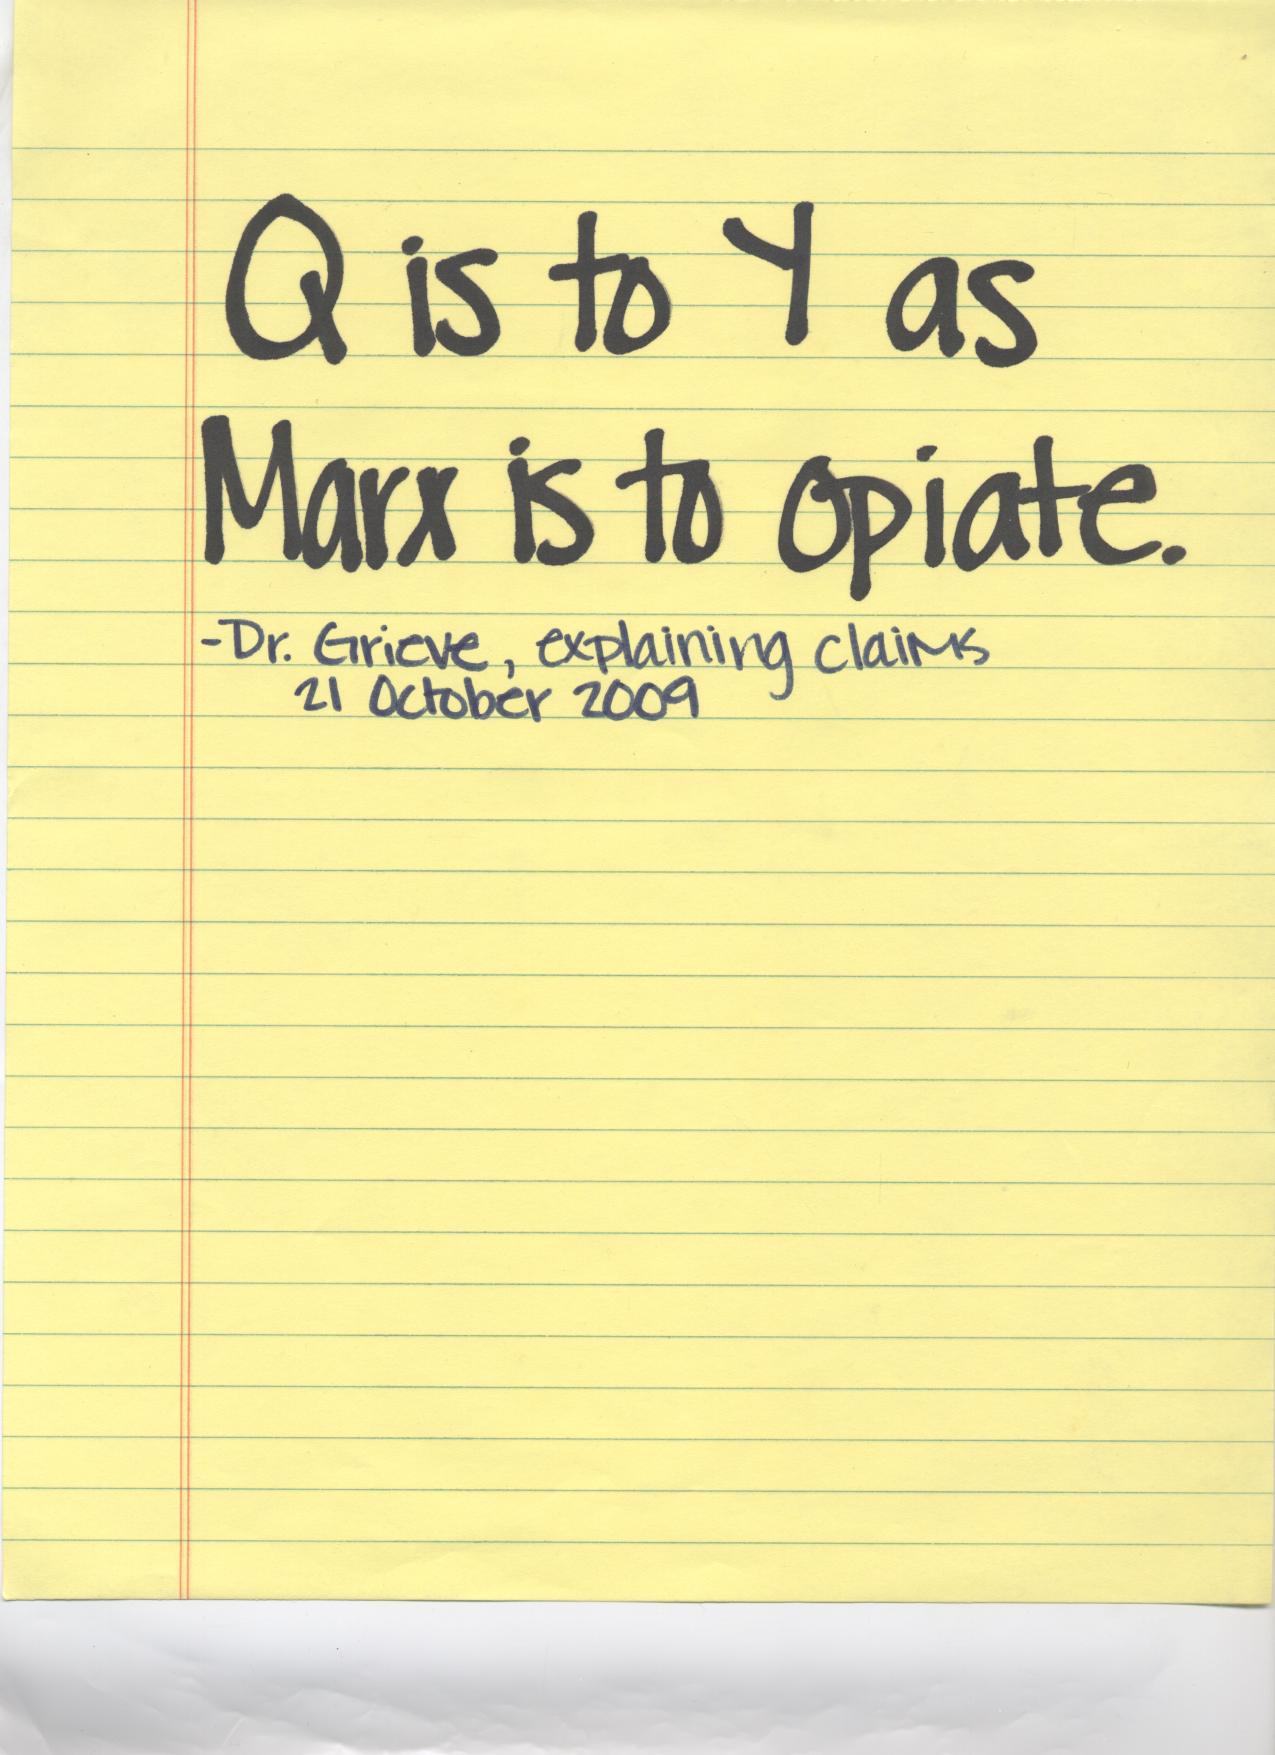 Q is to Y as
Marx is to opiate.
-Dr. Grieve, explaining claims
21 October 2009